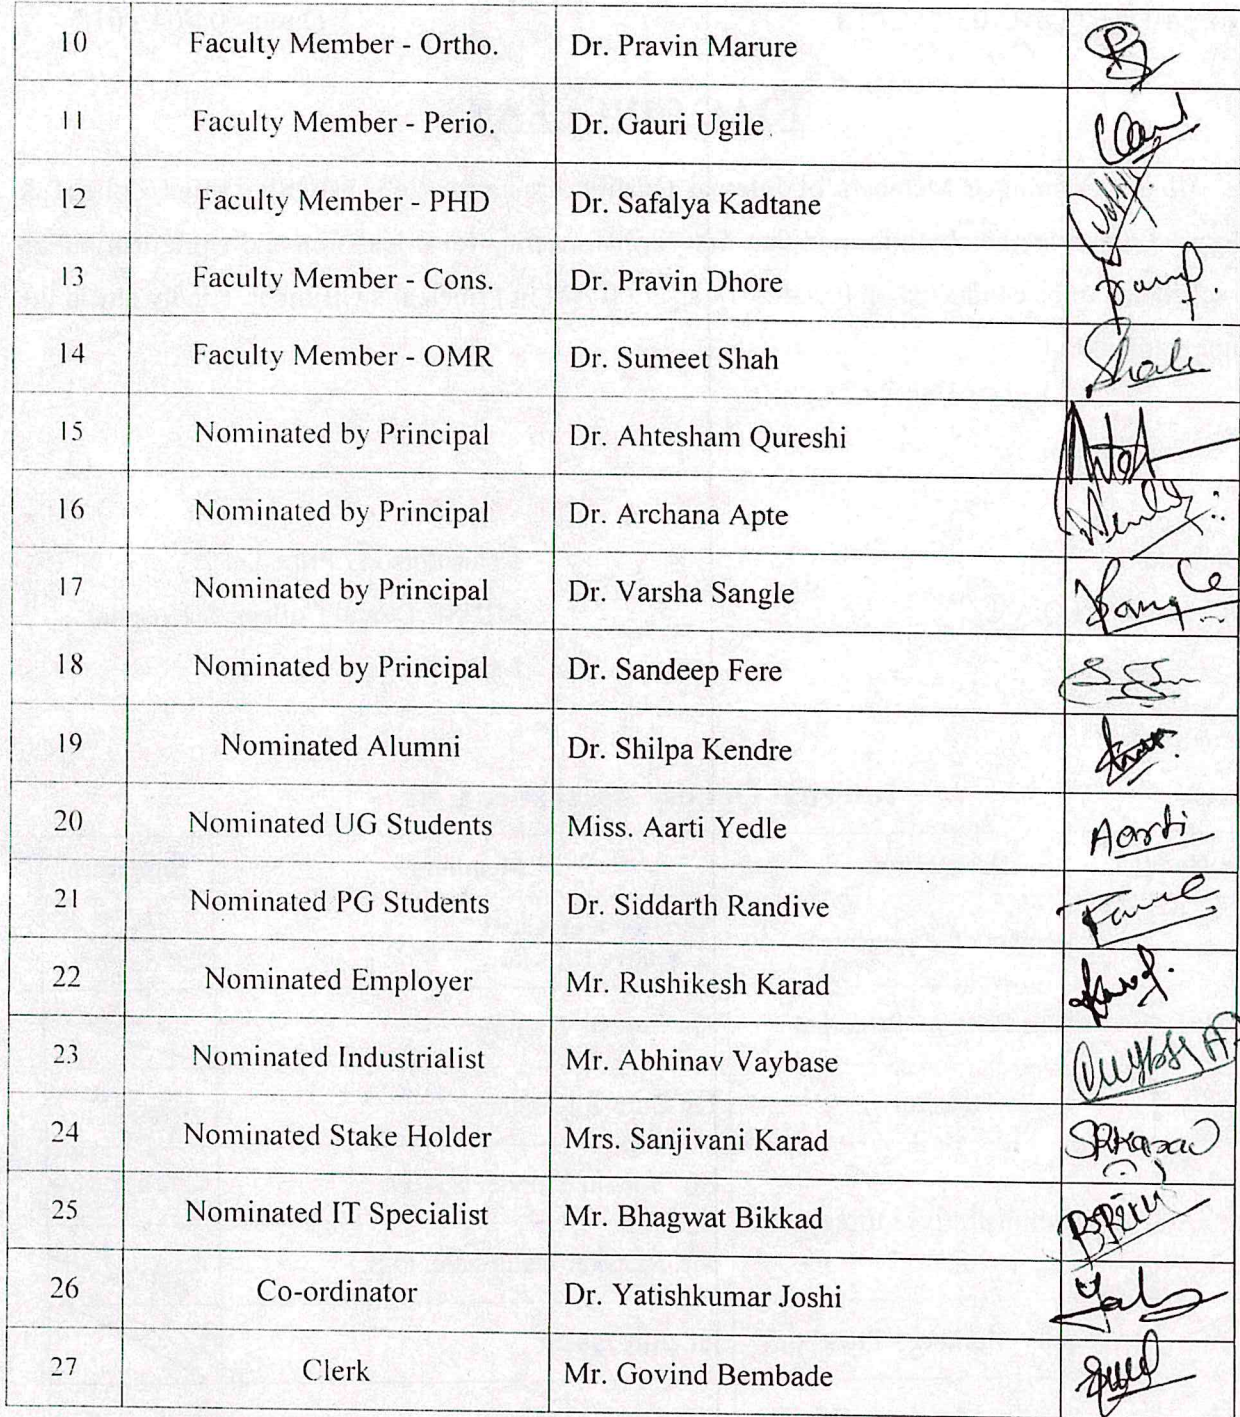 10 Faculty Member - Ortho. Dr. Pravin Marure
11 Faculty Member - Perio. Dr. Gauri Ugile
12 Faculty Member - PHD Dr. Safalya Kadtane
13 Faculty Member - Cons. Dr. Pravin Dhore
14 Faculty Member - OMR Dr. Sumeet Shah Shah
15 Nominated by Principal Dr. Ahtesham Qureshi
16 Nominated by Principal Dr. Archana Apte
17 Nominated by Principal Dr. Varsha Sangle
18 Nominated by Principal Dr. Sandeep Fere
19 Nominated Alumni Dr. Shilpa Kendre
20 Nominated UG Students Miss. Aarti Yedle Aarti
21 Nominated PG Students Dr. Siddarth Randive
22 Nominated Employer Mr. Rushikesh Karad
23 Nominated Industrialist Mr. Abhinav Vaybase
24 Nominated Stake Holder Mrs. Sanjivani Karad SRKarad
25 Nominated IT Specialist Mr. Bhagwat Bikkad
26 Co-ordinator Dr. Yatishkumar Joshi
27 Clerk Mr. Govind Bembade